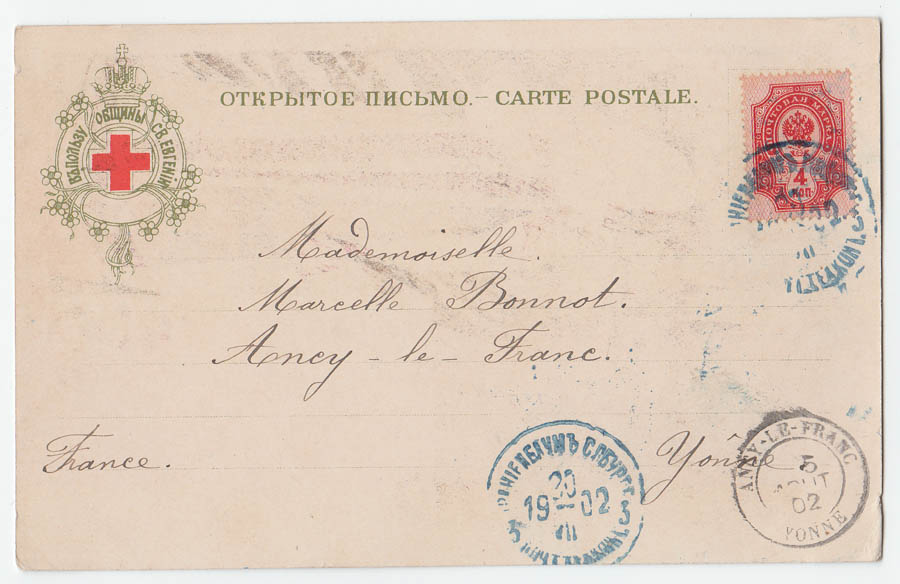 ВЪ ПОЛЬЗУ ОБЩИНЫ СВ. ЕВГЕНІИ
ОТКРЫТОЕ ПИСЬМО.— CARTE POSTALE.
ПОЧТОВАЯ МАРКА
4
КОП.
Mademoiselle.
Marcelle Bonnot.
Ancy-le-Franc.
France.
Yonne
20
19-02
VII
3 3
ANCY-LE-FRANC
5
AOUT
02
YONNE